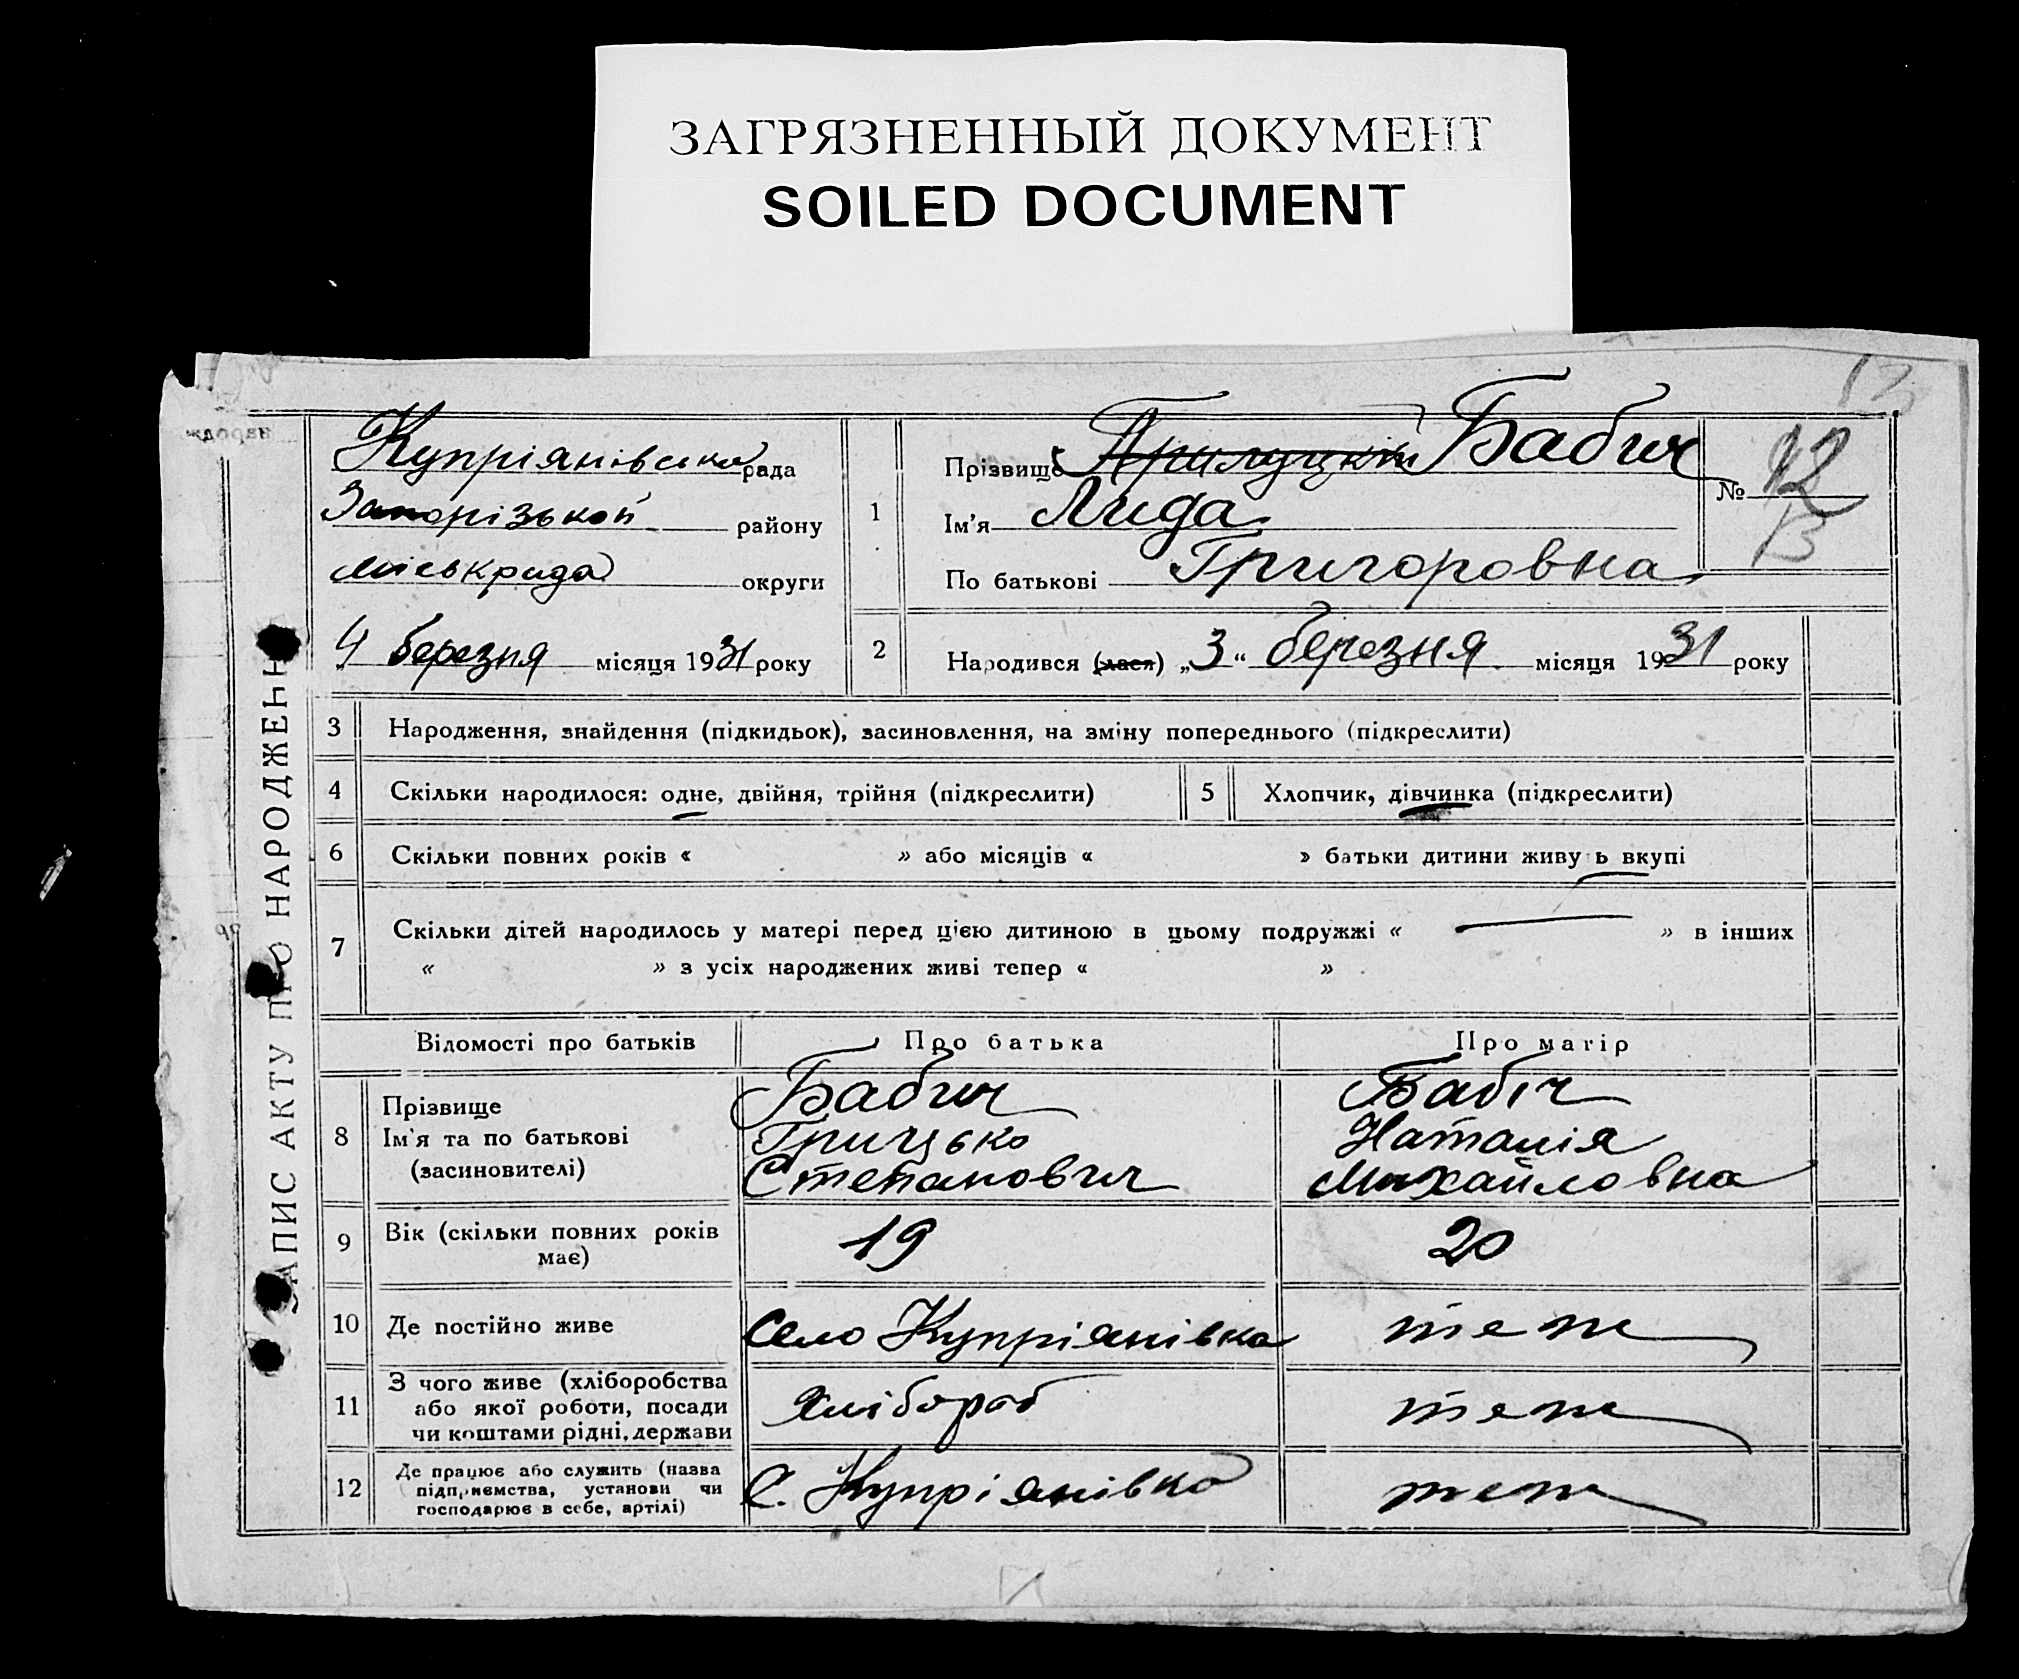 ЗАГРЯЗНЕННЫЙ ДОКУМЕНТ
SOILED DOCUMENT
13
ЗАПИС АКТУ ПРО НАРОДЖЕНН
Купріянівська рада
Запорізькой району
міськрада округи
4 березня місяця 1931 року
1
Прізвище Прилуцкій Бабич
Ім'я Лида
По батькові Григоровна
№ 12
13
2
Народився (лася) „3“ березня місяця 1931 року
3 Народження, знайдення (підкидьок), засиновлення, на зміну попереднього (підкреслити)
4 Скільки народилося: одне, двійня, трійня (підкреслити) 5 Хлопчик, дівчинка (підкреслити)
6 Скільки повних років « » або місяців « » батьки дитини живу ь вкупі
7 Скільки дітей народилось у матері перед цією дитиною в цьому подружжі « — » в інших
« » з усіх народжених живі тепер « »
Відомості про батьків Про батька Про матір
8 Прізвище Бабич Бабіч
Ім'я та по батькові Грицько Наталія
(засиновителі) Степанович Михайловна
9 Вік (скільки повних років має) 19 20
10 Де постійно живе Село Купріянівка теж
11 З чого живе (хліборобства
або якої роботи, посади
чи коштами рідні, держави хлібороб теж
12 Де працює або служить (назва
підприємства, установи чи
господарює в себе, артілі) С. Купріянівка теж